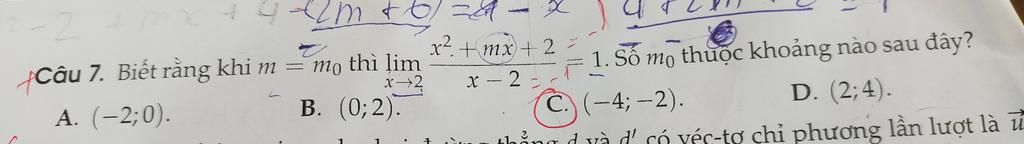 -2 + mx + 4 -(2m + 6) = 4 - x
Câu 7. Biết rằng khi m = m₀ thì lim x→2 (x² + mx + 2)/(x − 2) = 1. Số m₀ thuộc khoảng nào sau đây?
A. (−2;0). B. (0;2). C. (−4;−2). D. (2;4).
d và d' có véc-tơ chỉ phương lần lượt là u⃗